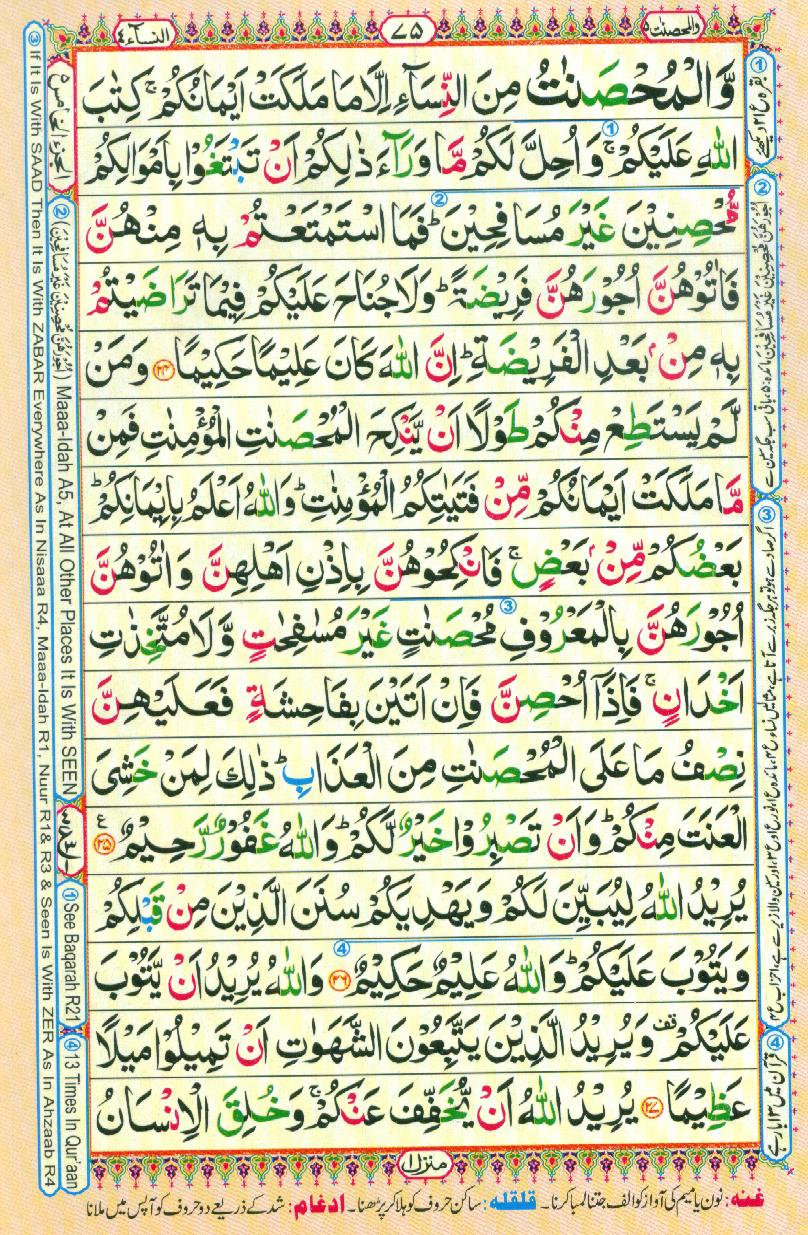 والمحصنت ۵
۷۵
النسآء ۴
وَّالْمُحْصَنٰتُ مِنَ النِّسَآءِ اِلَّا مَا مَلَكَتْ اَيْمَانُكُمْ ۚ كِتٰبَ
اللّٰهِ عَلَيْكُمْ ۚ وَاُحِلَّ لَكُمْ مَّا وَرَآءَ ذٰلِكُمْ اَنْ تَبْتَغُوْا بِاَمْوَالِكُمْ
مُّحْصِنِيْنَ غَيْرَ مُسَافِحِيْنَ ؕ فَمَا اسْتَمْتَعْتُمْ بِهٖ مِنْهُنَّ
فَاٰتُوْهُنَّ اُجُوْرَهُنَّ فَرِيْضَةً ؕ وَلَا جُنَاحَ عَلَيْكُمْ فِيْمَا تَرَاضَيْتُمْ
بِهٖ مِنْۢ بَعْدِ الْفَرِيْضَةِ ؕ اِنَّ اللّٰهَ كَانَ عَلِيْمًا حَكِيْمًا ﴿۲۴﴾ وَمَنْ
لَّمْ يَسْتَطِعْ مِنْكُمْ طَوْلًا اَنْ يَّنْكِحَ الْمُحْصَنٰتِ الْمُؤْمِنٰتِ فَمِنْ
مَّا مَلَكَتْ اَيْمَانُكُمْ مِّنْ فَتَيٰتِكُمُ الْمُؤْمِنٰتِ ؕ وَاللّٰهُ اَعْلَمُ بِاِيْمَانِكُمْ ؕ
بَعْضُكُمْ مِّنْۢ بَعْضٍ ۚ فَانْكِحُوْهُنَّ بِاِذْنِ اَهْلِهِنَّ وَاٰتُوْهُنَّ
اُجُوْرَهُنَّ بِالْمَعْرُوْفِ مُحْصَنٰتٍ غَيْرَ مُسٰفِحٰتٍ وَّلَا مُتَّخِذٰتِ
اَخْدَانٍ ۚ فَاِذَآ اُحْصِنَّ فَاِنْ اَتَيْنَ بِفَاحِشَةٍ فَعَلَيْهِنَّ
نِصْفُ مَا عَلَى الْمُحْصَنٰتِ مِنَ الْعَذَابِ ؕ ذٰلِكَ لِمَنْ خَشِيَ
الْعَنَتَ مِنْكُمْ ؕ وَاَنْ تَصْبِرُوْا خَيْرٌ لَّكُمْ ؕ وَاللّٰهُ غَفُوْرٌ رَّحِيْمٌ ﴿۲۵﴾
يُرِيْدُ اللّٰهُ لِيُبَيِّنَ لَكُمْ وَيَهْدِيَكُمْ سُنَنَ الَّذِيْنَ مِنْ قَبْلِكُمْ
وَيَتُوْبَ عَلَيْكُمْ ؕ وَاللّٰهُ عَلِيْمٌ حَكِيْمٌ ﴿۲۶﴾ وَاللّٰهُ يُرِيْدُ اَنْ يَّتُوْبَ
عَلَيْكُمْ ۫ وَيُرِيْدُ الَّذِيْنَ يَتَّبِعُوْنَ الشَّهَوٰتِ اَنْ تَمِيْلُوْا مَيْلًا
عَظِيْمًا ﴿۲۷﴾ يُرِيْدُ اللّٰهُ اَنْ يُّخَفِّفَ عَنْكُمْ ۚ وَخُلِقَ الْاِنْسَانُ
منزل ۱
غنه: نون یا میم کی آواز کو الف جتنا لمبا کرنا۔ قلقله: ساکن حروف کو ہلا کر پڑھنا۔ ادغام: شد کے ذریعے دو حروف کو آپس میں ملانا
الجزء الخامس
② (اُجُوْرَهُنَّ مُحْصِنِيْنَ غَيْرَ مُسَافِحِيْنَ) Maaa-Idah A5, At All Other Places It Is With SEEN
① See Baqarah R21
④ 13 Times In Qur'aan
③ If It Is With SAAD Then It Is With ZABAR Everywhere As In Nisaaa R4, Maaa-Idah R1, Nuur R1& R3 & Seen Is With ZER As In Ahzaab R4